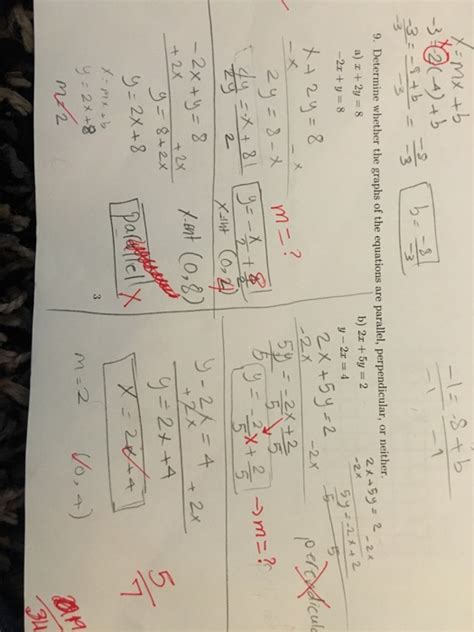 x = mx + b
-3 = -2(-4) + b
-3/-3 = -8 + b/-3 = -8/-3
b = -8/-3
-1 = -8 + b
-1 -1
9. Determine whether the graphs of the equations are parallel, perpendicular, or neither.
a) x + 2y = 8
-2x + y = 8
x + 2y = 8
-x -x
2y = 8 - x
2y = -x + 8
2
y = -x/2 + 8/2
m = ?
x-int (0, 4)
-2x + y = 8
+2x +2x
y = 8 + 2x
y = 2x + 8
x = mx + b
y = 2x + 8
m = 2
x-int (0, 8)
parallel X
3
b) 2x + 5y = 2
y - 2x = 4
2x + 5y = 2
-2x -2x
5y = -2x + 2
5 5
2x + 5y = 2
-2x -2x
5y = -2x + 2
5 5
y = -2/5 x + 2/5
→ m = ?
y - 2x = 4
+2x +2x
y = 2x + 4
x = 2x + 4
m = 2
(0, 4)
5/7